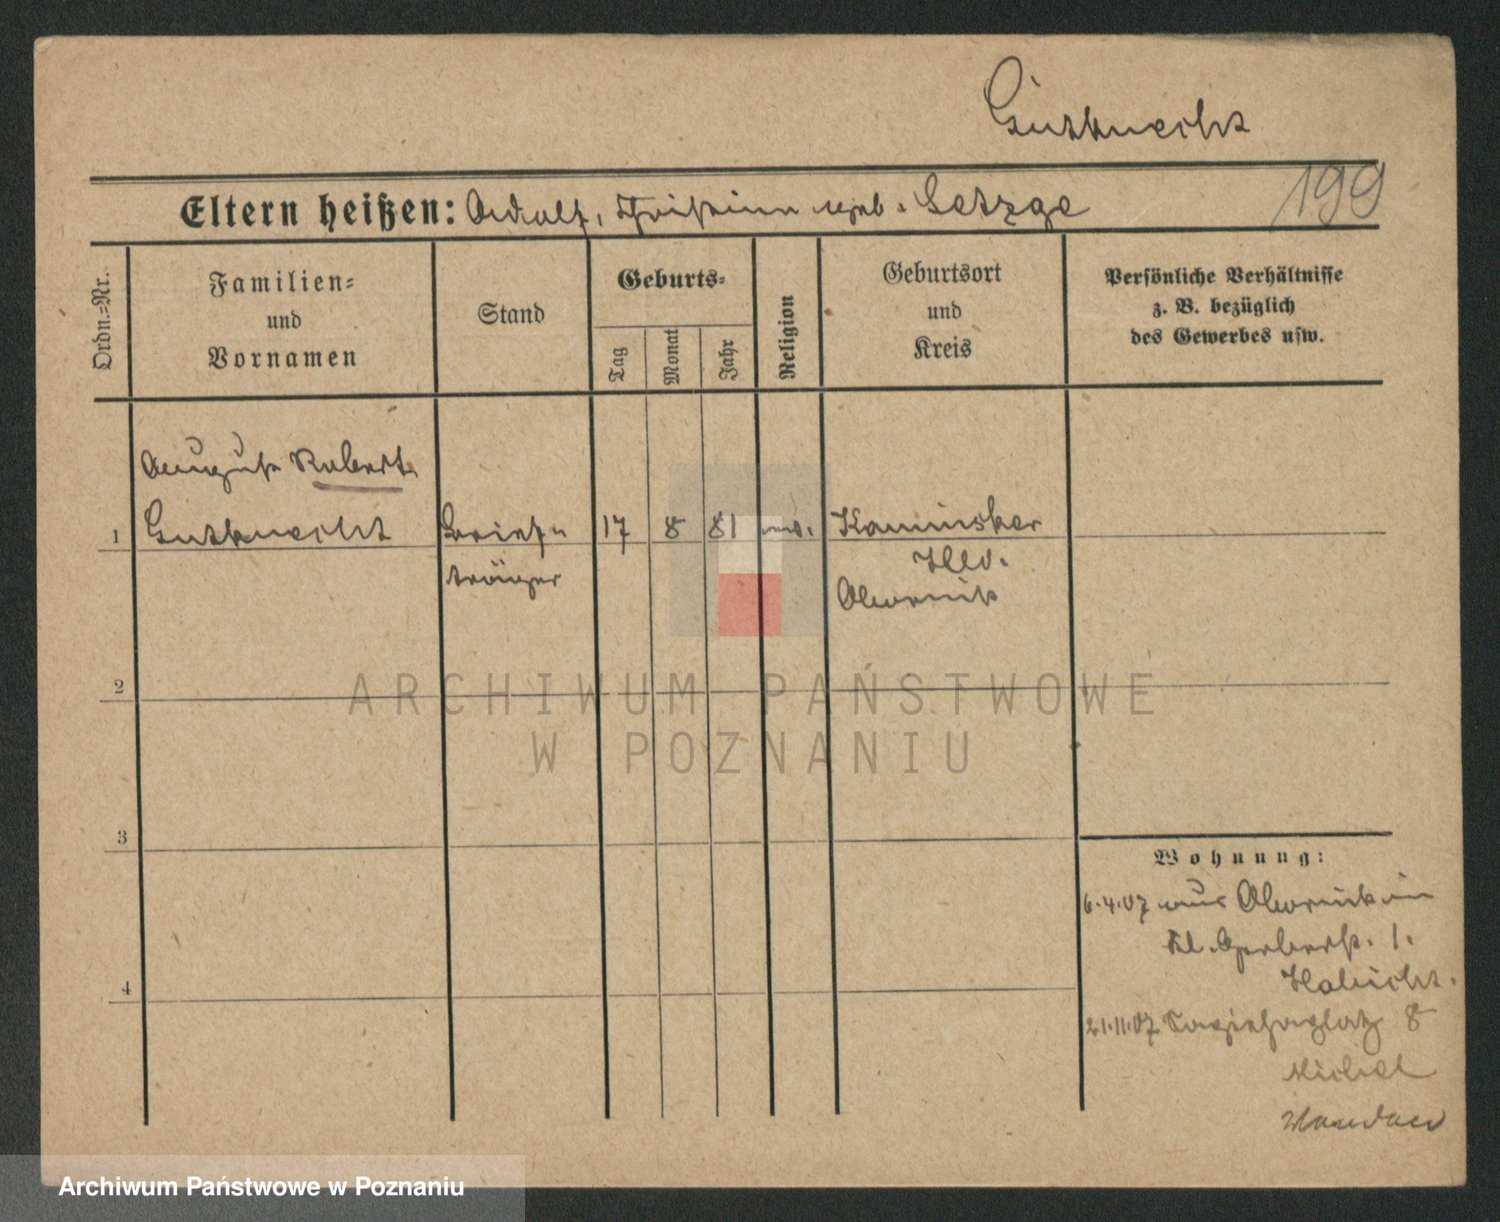 Gutknecht
199
Eltern heißen: Adolf, Christine geb. Setzge
Ordn.=Nr.
Familien=
und
Vornamen
Stand
Geburts=
Tag
Monat
Jahr
Religion
Geburtsort
und
Kreis
Persönliche Verhältnisse
z. B. bezüglich
des Gewerbes usw.
August Robert
1 Gutknecht Brief= 17 8 81 Kaminsker
träger Hld.
Obornik
2
3
4
ARCHIWUM PAŃSTWOWE
W POZNANIU
Wohnung:
6.4.07 aus Obornik in
Kl. Gerberst. 1.
Habicht.
21.11.07 Sapiehaplatz 8
Michel
Archiwum Państwowe w Poznaniu